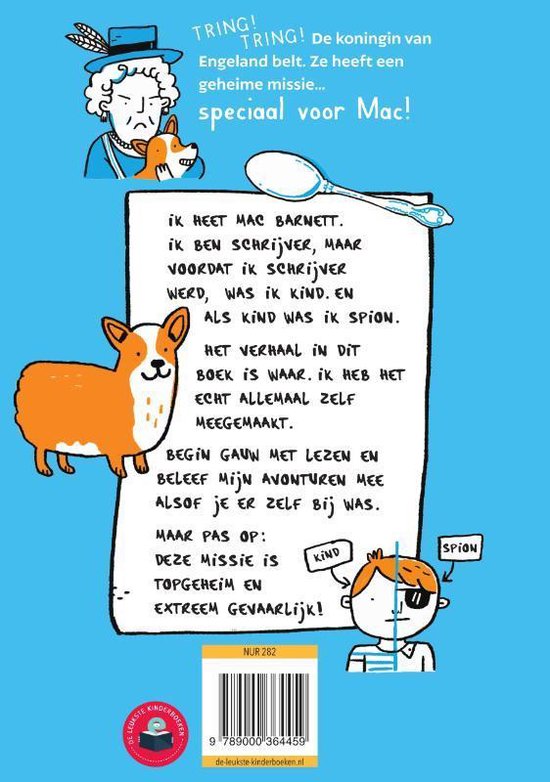 TRING!
TRING! De koningin van
Engeland belt. Ze heeft een
geheime missie...
speciaal voor Mac!
IK HEET MAC BARNETT.
IK BEN SCHRIJVER, MAAR
VOORDAT IK SCHRIJVER
WERD, WAS IK KIND. EN
ALS KIND WAS IK SPION.
HET VERHAAL IN DIT
BOEK IS WAAR. IK HEB HET
ECHT ALLEMAAL ZELF
MEEGEMAAKT.
BEGIN GAUW MET LEZEN EN
BELEEF MIJN AVONTUREN MEE
ALSOF JE ER ZELF BIJ WAS.
MAAR PAS OP:
DEZE MISSIE IS
TOPGEHEIM EN
EXTREEM GEVAARLIJK!
KIND
SPION
NUR 282
9 789000 364459
de-leukste-kinderboeken.nl
DE LEUKSTE KINDERBOEKEN